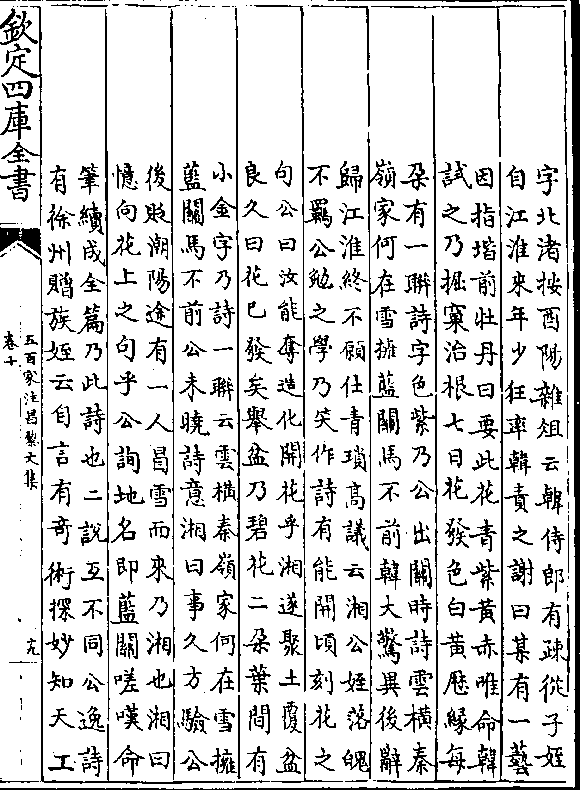 字北渚按酉陽雜俎云韓侍郎有疎從子姪
自江淮來年少狂率韓責之謝曰某有一藝
因指堦前牡丹曰要此花青紫黄赤唯命韓
試之乃掘窠治根七日花發色白黄歴縁每
朶有一聯詩字色紫乃公出關時詩雲横秦
嶺家何在雪擁藍關馬不前韓大驚異後辭
歸江淮終不願仕青瑣髙議云湘公姪落魄
不羈公勉之學乃笑作詩有能開頃刻花之
句公曰汝能奪造化開花乎湘遂聚土覆盆
良久曰花已發矣舉盆乃碧花二朶葉間有
小金字乃詩一聯云雲横秦嶺家何在雪擁
藍關馬不前公未曉詩意湘曰事久方驗公
後貶潮陽途有一人冒雪而來乃湘也湘曰
憶向花上之句乎公詢地名即藍關嗟嘆命
筆續成全篇乃此詩也二說互不同公逸詩
有徐州贈族姪云自言有竒術探妙知天工
欽定四庫全書
五百家注昌黎文集
卷十
十九